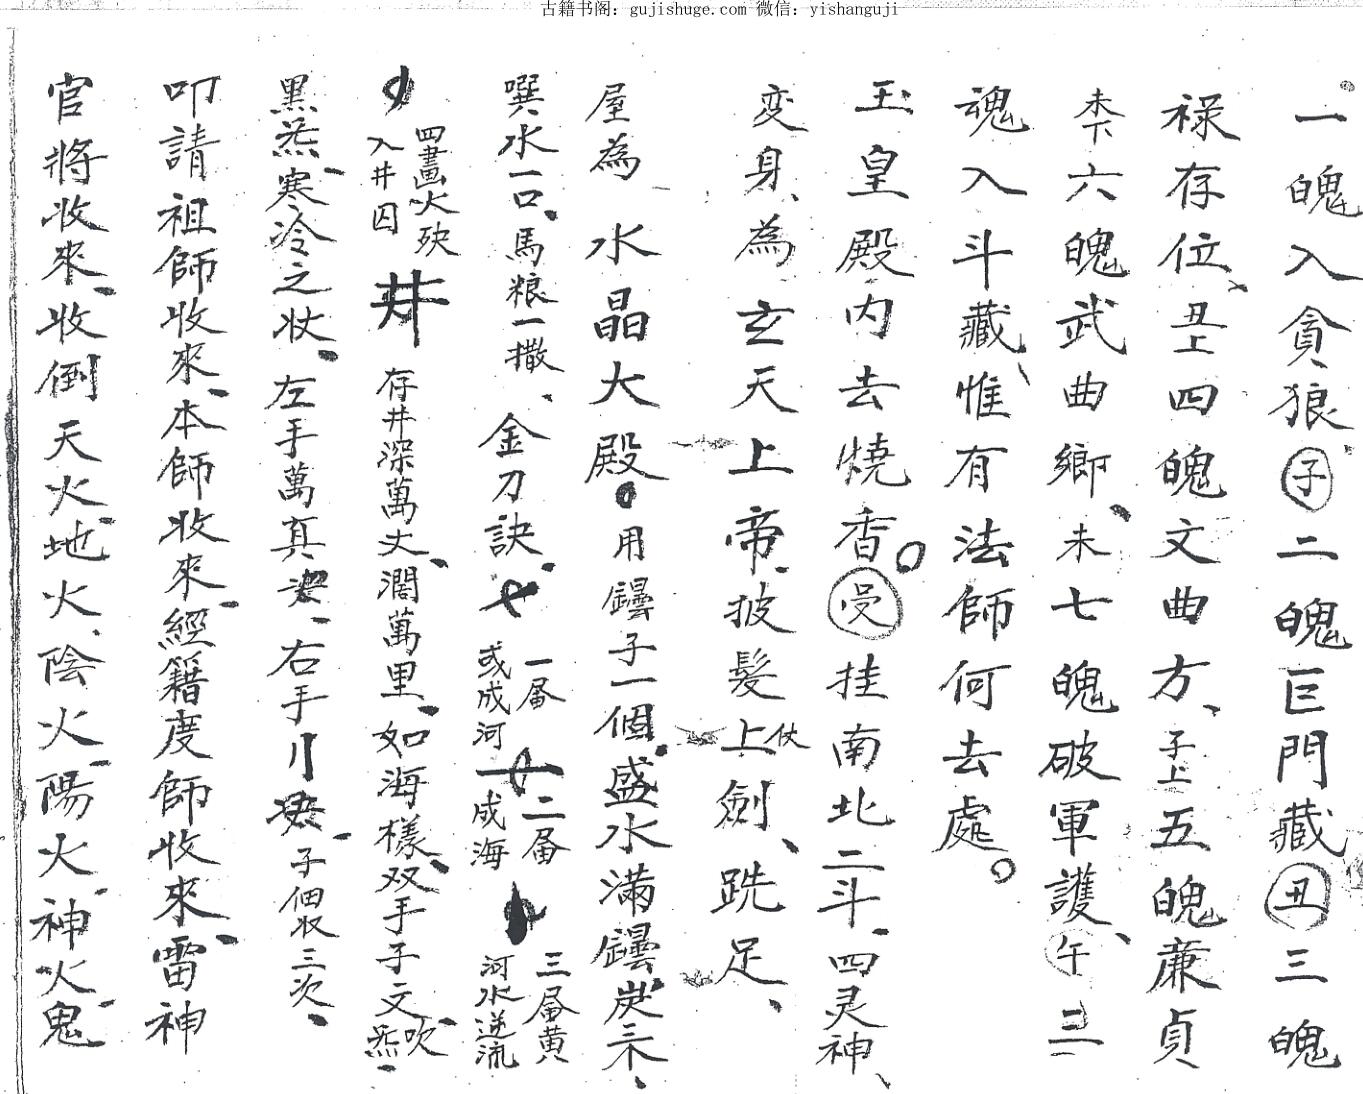 古籍书阁：gujishuge.com 微信：yishanguji
一魄入貪狼子二魄巨門藏丑三魄
祿存位丑上四魄文曲方、子上五魄廉貞
未下六魄武曲鄉、未七魄破軍護、午三
魂入斗藏、惟有法師何去處。
玉皇殿内去燒香。受挂南北二斗、四灵神、
变身、為玄天上帝、披髮上仗劍、跣足、
屋為水晶大殿。用罎子一個、盛水滿罎、炭三木、
噀水一口、馬粮一撒、金刀訣、一屇或成河二屇成海三屇黄河水逆流
四畫火殃入井囚井存井深萬丈、濶萬里、如海樣、双手子文、吹炁、
黑炁寒冷之状、左手萬真、右手子個收三次、
叩請祖師收來、本師收來、經籍度師收來、雷神
官將收來、收倒天火、地火、陰火、陽火、神火、鬼